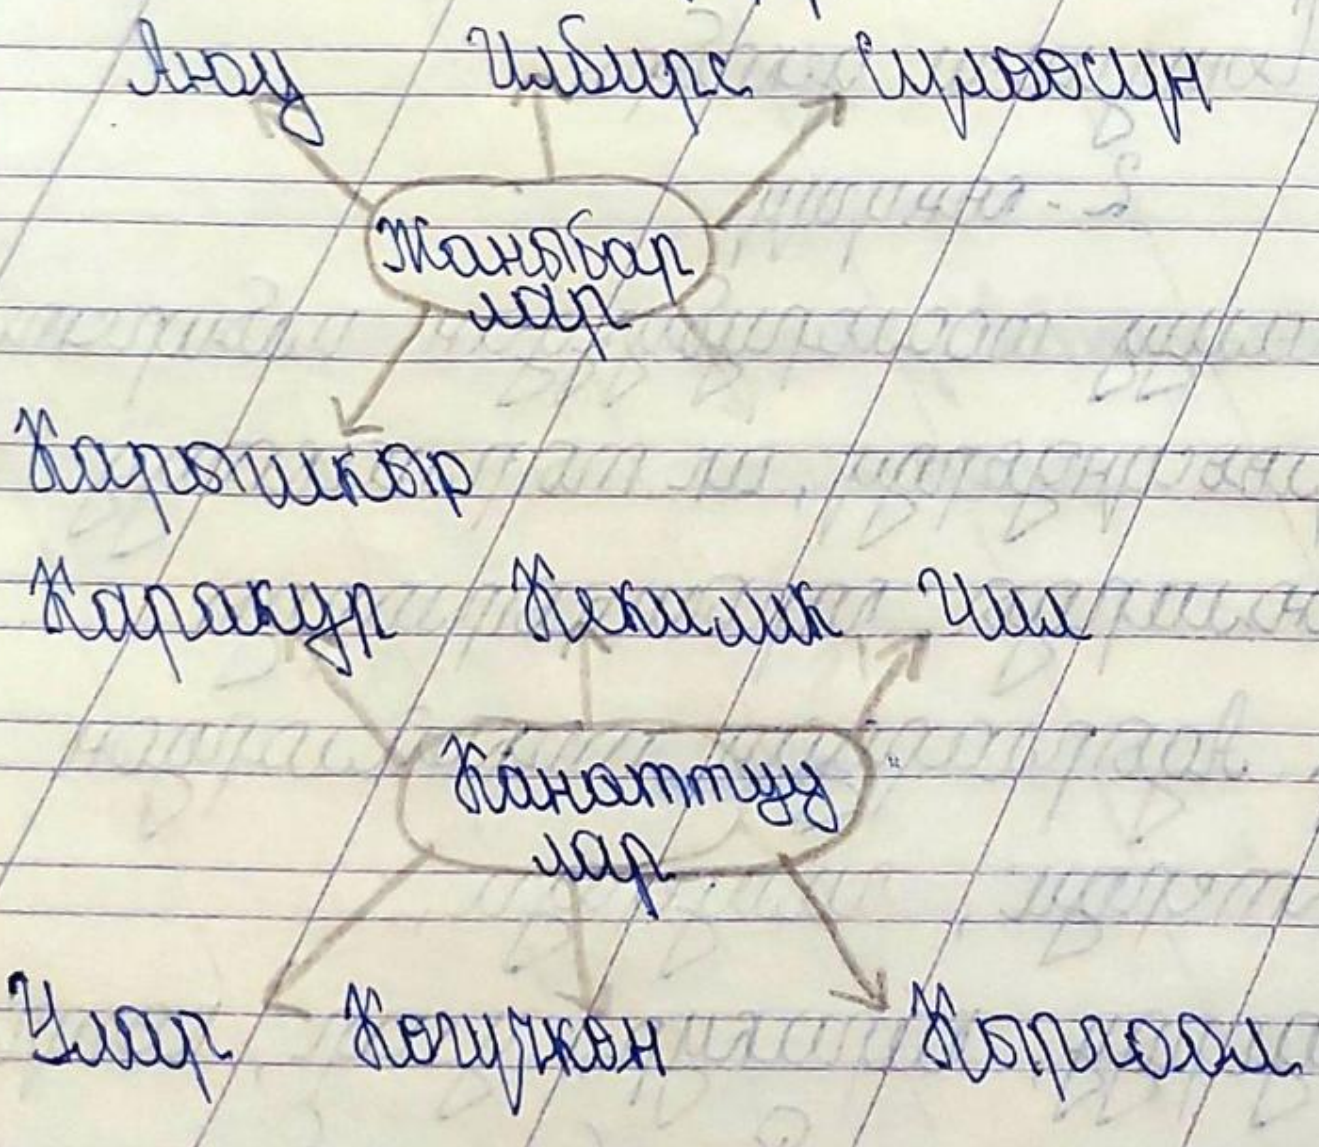 Аюу Илбирс Сүлөөсүн
Жаныбар
лар
Карышкыр
Каракур Кекилик Чил
Канаттуу
лар
Улар Көгүчкөн Кыргоол